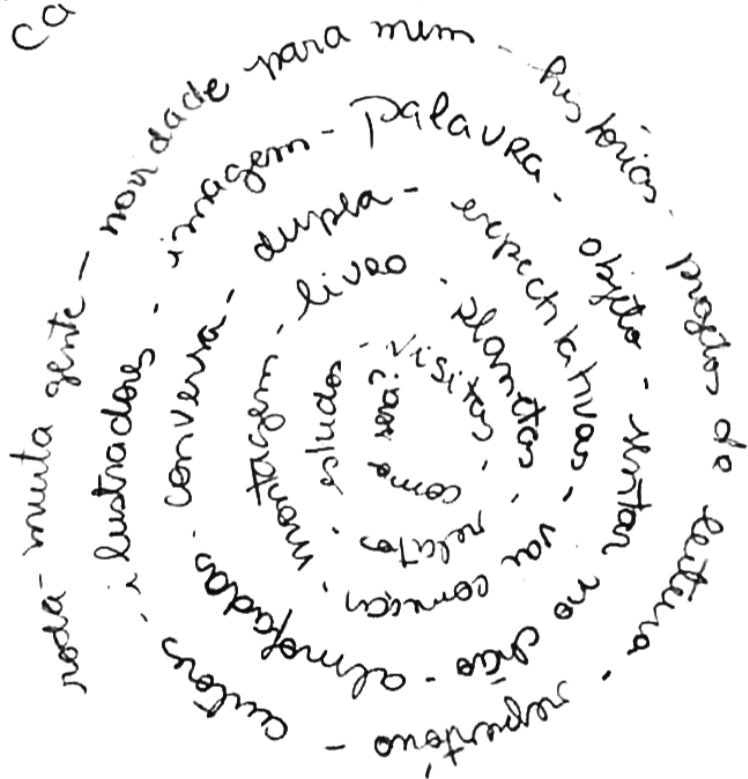 ca
roda - muita gente - novidade para mim - histórias - projetos de leitura - repertório - autores - ilustradores - imagem - Palavra - objeto - sentar no chão - almofadas - conversa - dupla - expectativas - vai começar - montagem - livro - planetas - relatos - estudos - visitas - como será?